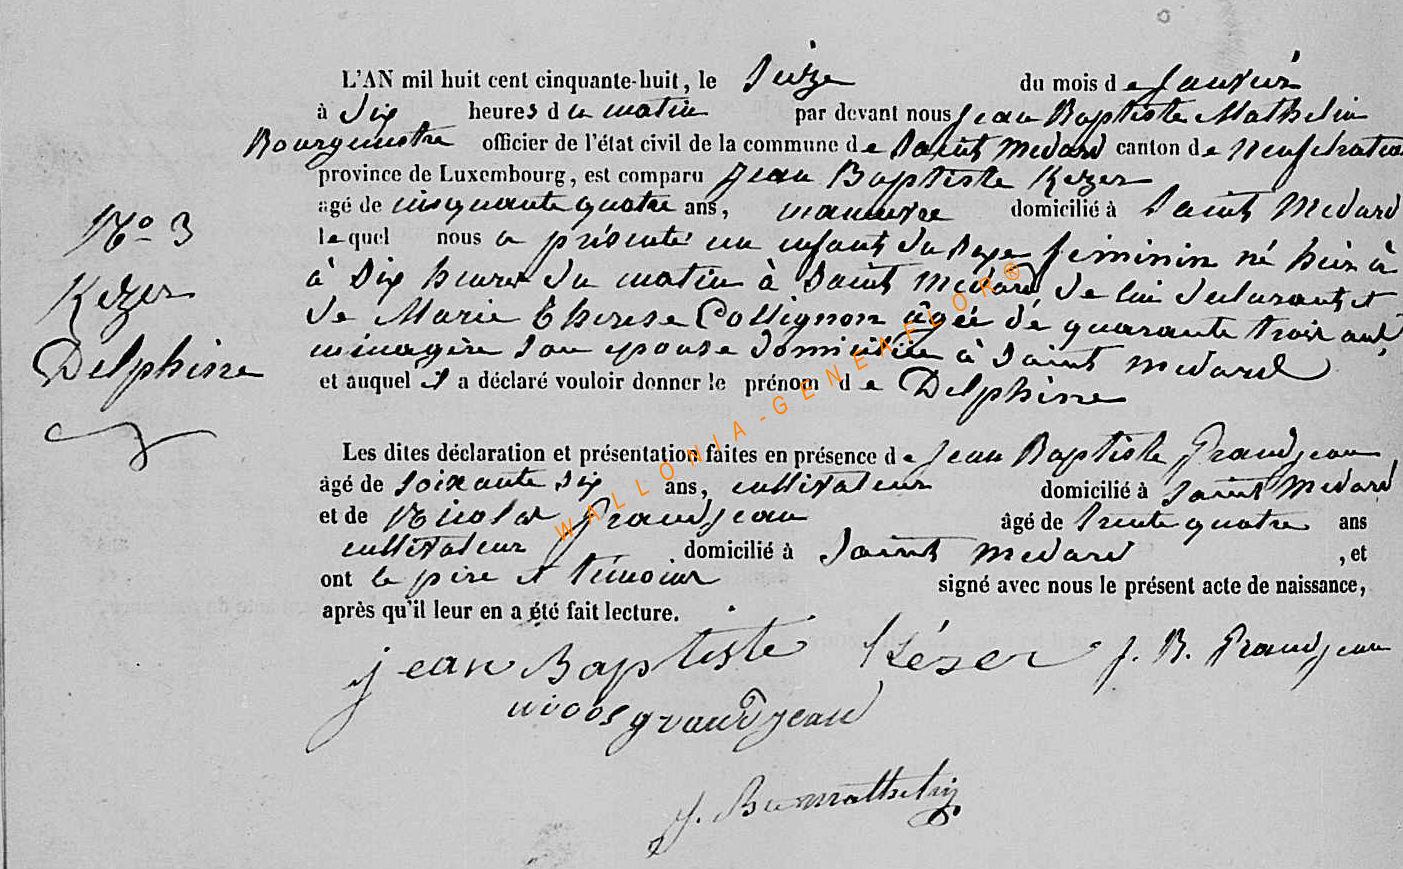 L'AN mil huit cent cinquante-huit, le Seize du mois de Janvier
à Dix heures du matin par devant nous Jean Baptiste Mathelin
Bourgmestre officier de l'état civil de la commune de Saint Médard canton de Neufchateau
province de Luxembourg, est comparu Jean Baptiste Kezer
âgé de cinquante quatre ans, manœuvre domicilié à Saint Médard
lequel nous a présenté un enfant du sexe féminin né hier à
à Dix heures du matin à Saint Médard de lui déclarant et
de Marie Thérese Collignon âgée de quarante trois ans,
ménagère son épouse domiciliée à Saint Médard
et auquel il a déclaré vouloir donner le prénom de Delphine
N° 3
Kezer
Delphine
Les dites déclaration et présentation faites en présence de Jean Baptiste Grandjean
âgé de soixante six ans, cultivateur domicilié à Saint Médard
et de Nicolas Grandjean âgé de trente quatre ans
cultivateur domicilié à Saint Médard , et
ont le père et témoins signé avec nous le présent acte de naissance,
après qu'il leur en a été fait lecture.
jean Baptiste Késer J. B. Grandjean
grandjean
J. Bte mathelin
WALLONIA-GENEAFLOR®